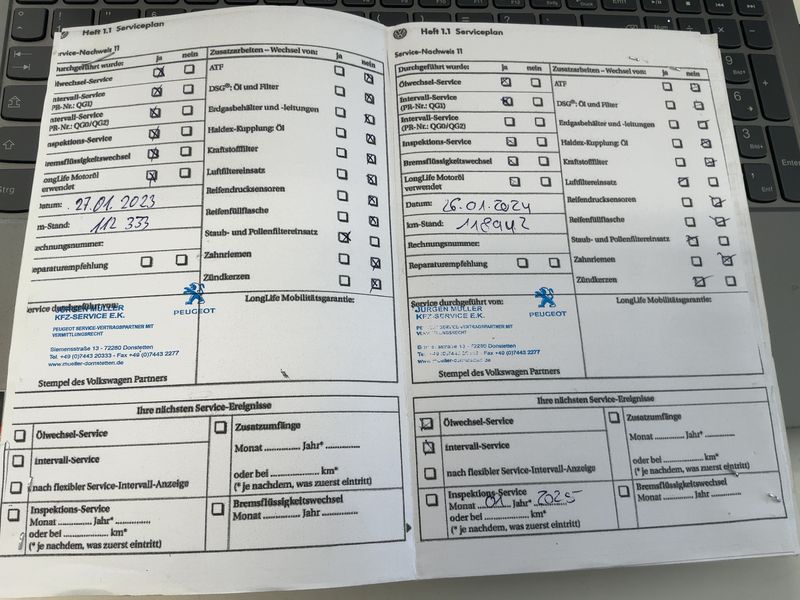 Heft 1.1 Serviceplan
Service-Nachweis 11
Durchgeführt wurde: ja nein
Ölwechsel-Service
Intervall-Service
(PR-Nr.: QG1)
Intervall-Service
(PR-Nr.: QG0/QG2)
Inspektions-Service
Bremsflüssigkeitswechsel
LongLife Motoröl
verwendet
Datum: 27.01.2023
km-Stand: 112 333
Rechnungsnummer:
Reparaturempfehlung
Zusatzarbeiten – Wechsel von: ja nein
ATF
DSG®: Öl und Filter
Erdgasbehälter und -leitungen
Haldex-Kupplung: Öl
Kraftstofffilter
Luftfiltereinsatz
Reifendrucksensoren
Reifenfüllflasche
Staub- und Pollenfiltereinsatz
Zahnriemen
Zündkerzen
Service durchgeführt von:
JÜRGEN MÜLLER
KFZ-SERVICE E.K.
PEUGEOT
PEUGEOT SERVICE-VERTRAGSPARTNER MIT
VERMITTLUNGSRECHT
Siemensstraße 13 - 72280 Dornstetten
Tel. +49 (0)7443 20333 - Fax +49 (0)7443 2277
www.mueller-dornstetten.de
LongLife Mobilitätsgarantie:
Stempel des Volkswagen Partners
Ihre nächsten Service-Ereignisse
Ölwechsel-Service
Intervall-Service
nach flexibler Service-Intervall-Anzeige
Inspektions-Service
Monat ............ Jahr* ..............
oder bei .................... km*
(* je nachdem, was zuerst eintritt)
Zusatzumfänge
Monat ............ Jahr* ..............
oder bei .................... km*
(* je nachdem, was zuerst eintritt)
Bremsflüssigkeitswechsel
Monat ............ Jahr ..............
Heft 1.1 Serviceplan
Service-Nachweis 11
Durchgeführt wurde: ja nein
Ölwechsel-Service
Intervall-Service
(PR-Nr.: QG1)
Intervall-Service
(PR-Nr.: QG0/QG2)
Inspektions-Service
Bremsflüssigkeitswechsel
LongLife Motoröl
verwendet
Datum: 26.01.2024
km-Stand: 118942
Rechnungsnummer:
Reparaturempfehlung
Zusatzarbeiten – Wechsel von: ja nein
ATF
DSG®: Öl und Filter
Erdgasbehälter und -leitungen
Haldex-Kupplung: Öl
Kraftstofffilter
Luftfiltereinsatz
Reifendrucksensoren
Reifenfüllflasche
Staub- und Pollenfiltereinsatz
Zahnriemen
Zündkerzen
Service durchgeführt von:
JÜRGEN MÜLLER
KFZ-SERVICE E.K.
PEUGEOT
SERVICE-VERTRAGSPARTNER MIT
VERMITTLUNGSRECHT
13 - 72280 Dornstetten
Tel. +49 (0)7443 20333 - Fax +49 (0)7443 2277
LongLife Mobilitätsgarantie:
Stempel des Volkswagen Partners
Ihre nächsten Service-Ereignisse
Ölwechsel-Service
Intervall-Service
nach flexibler Service-Intervall-Anzeige
Inspektions-Service
Monat 01 Jahr 2025
oder bei .................... km*
(* je nachdem, was zuerst eintritt)
Zusatzumfänge
Monat ............ Jahr* ..............
oder bei .................... km*
(* je nachdem, was zuerst eintritt)
Bremsflüssigkeitswechsel
Monat ............ Jahr ..............